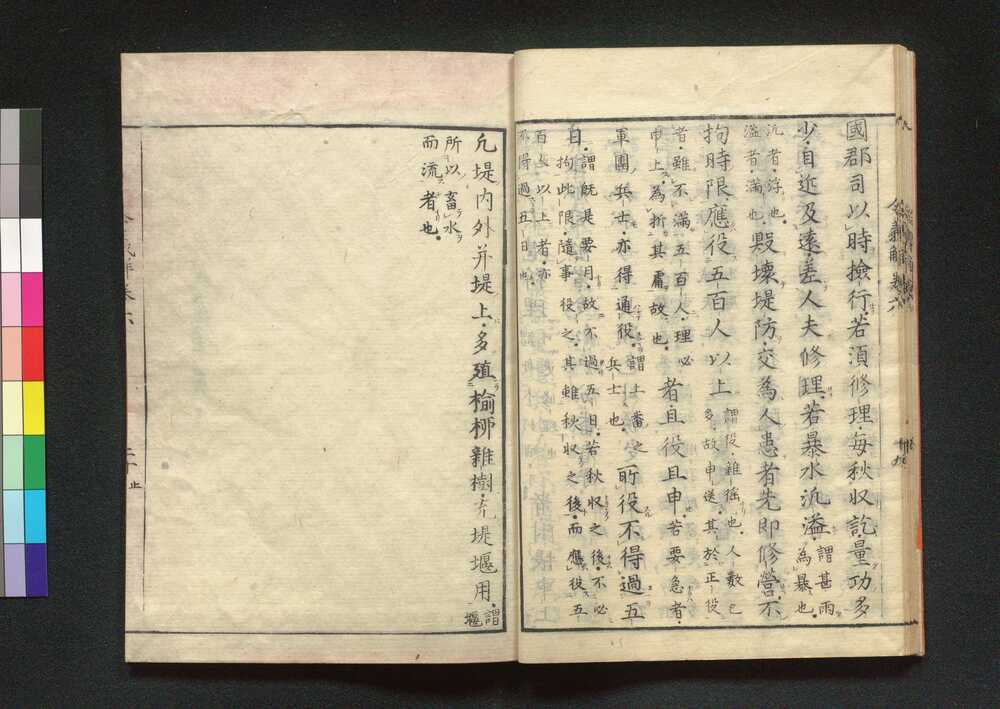 國郡司以時撿行若須修理每秋収訖量功多
少自近及遠差人夫修理若暴水汎溢謂甚雨為暴也
汎者浮也溢者滿也毀壞堤防交為人患者先即修營不
拘時限應役五百人以上謂役雜徭也人數已多故申送其於正役
者雖不滿五百人理必申上為折其庸故也者且役且申若要急者
軍團兵士亦得通役謂上番之兵士也所役不得過五
日謂既是要月故不過五日若秋収之後不必拘此限隨事役之其雖秋収之後而應役五
百人以上者亦不得過五日也
凢堤內外并堤上多殖榆柳雜樹充堤堰用謂堰
所以畜水
而流者也
令義解卷六
二十止